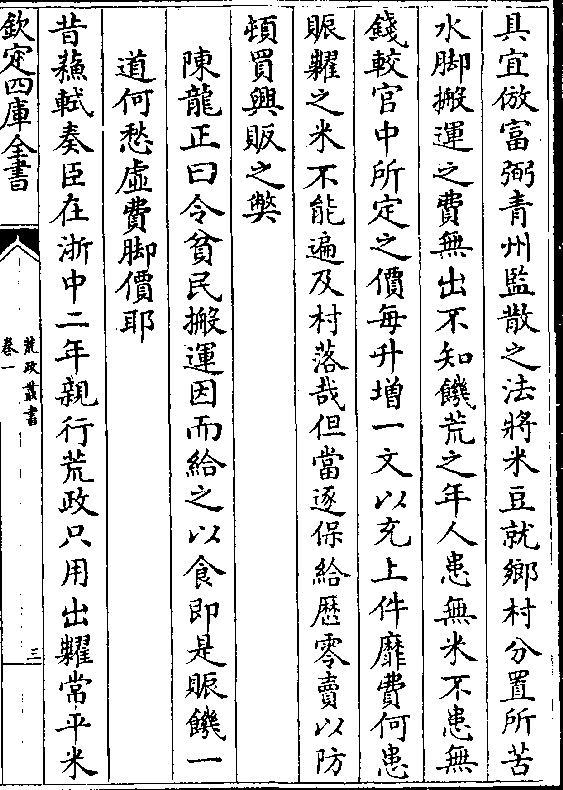 具宜倣富弼青州監散之法將米豆就鄉村分置所苦
水脚搬運之費無出不知饑荒之年人患無米不患無
錢較官中所定之價每升增一文以充上件靡費何患
賑糶之米不能遍及村落哉但當逐保給歷零賣以防
頓買興販之弊
陳龍正曰令貧民搬運因而給之以食即是賑饑一
道何愁虛費脚價耶
昔蘇軾奏臣在浙中二年親行荒政只用出糶常平米
欽定四庫全書
荒政叢書
卷一
三